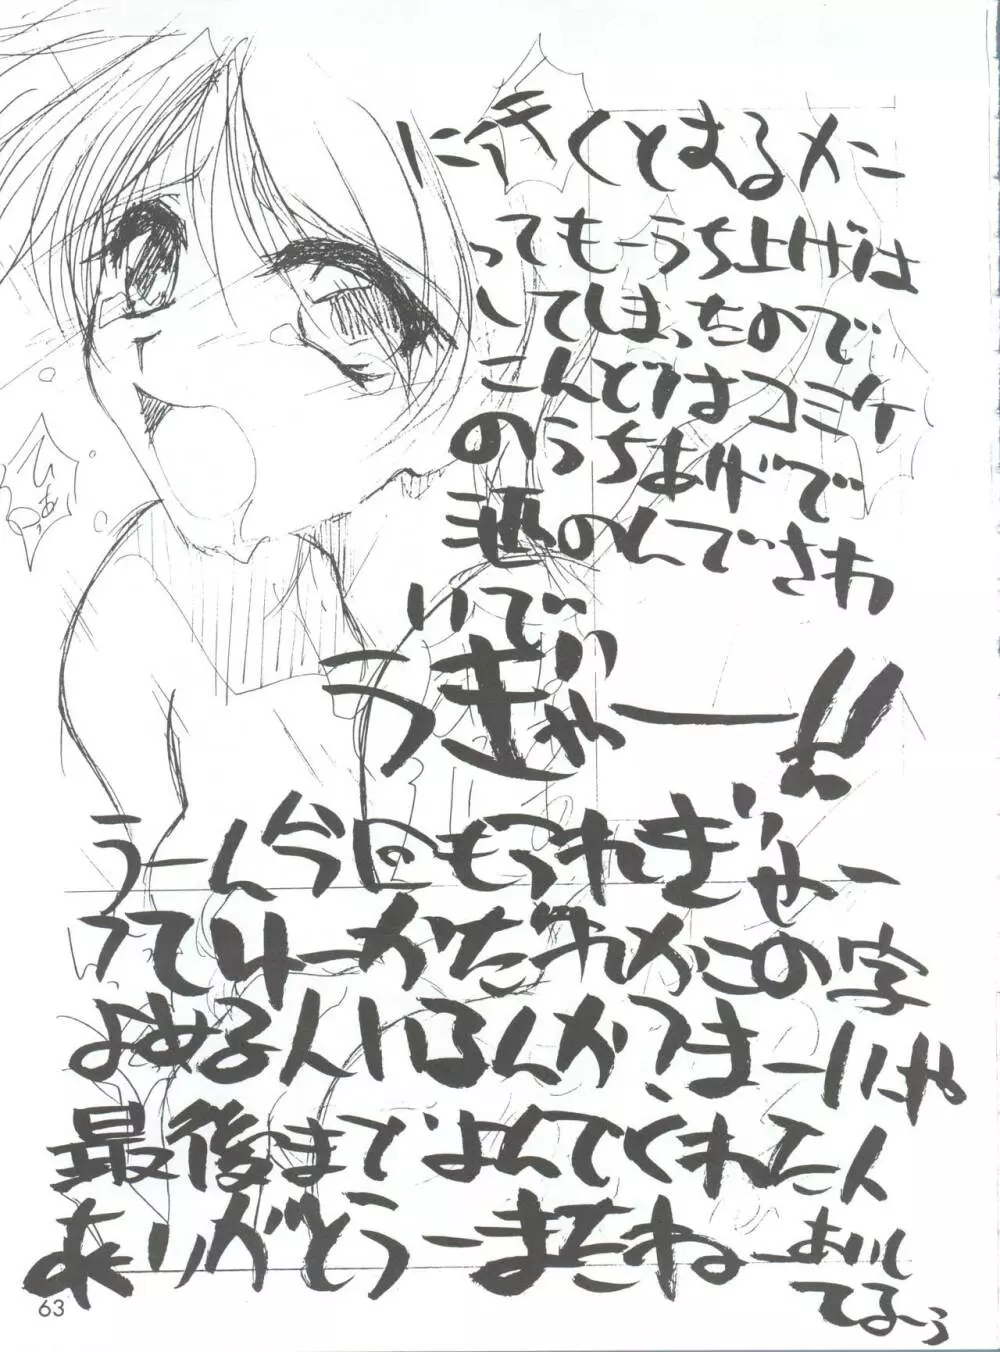 に行くとまるメン
ってもーうち上げは
してしまったので
こんどはコミケ
のうちあげで
酒のんでさわ
いでい
うぎゃー!!
うーん今回もつれぎ
ってゆーかだれかこの字
よめる人いるんか?まーいいや
最後までよんでくれた人
ありがとうーまたねーあいし
てるーぅ
ひぁ
63